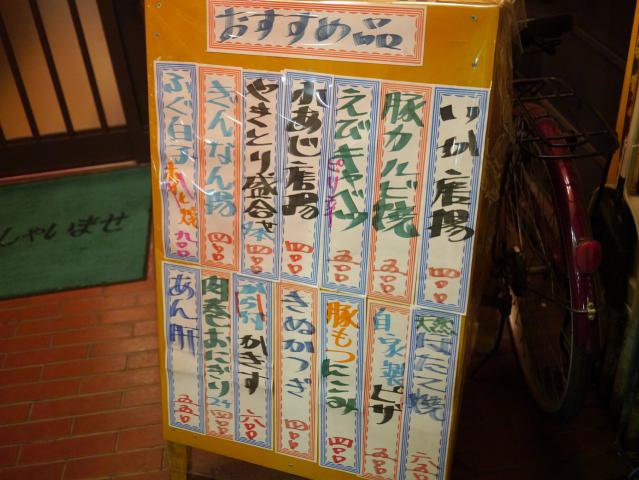 おすすめ品
いか唐揚 四〇〇
豚カルビ焼 五〇〇
えびキャベツ ピリ辛 五〇〇
小あじ唐揚 四〇〇
やきとり盛合せ 四〇〇
ぎんなん揚 四〇〇
ふぐ白子 九〇〇
ほたて焼 六五〇
自家製ピザ 五〇〇
豚もつにこみ 四〇〇
きぬかつぎ 四〇〇
かきす 六八〇
肉巻きおにぎり 2ヶ 四〇〇
あん肝 五五〇
しゃいませ